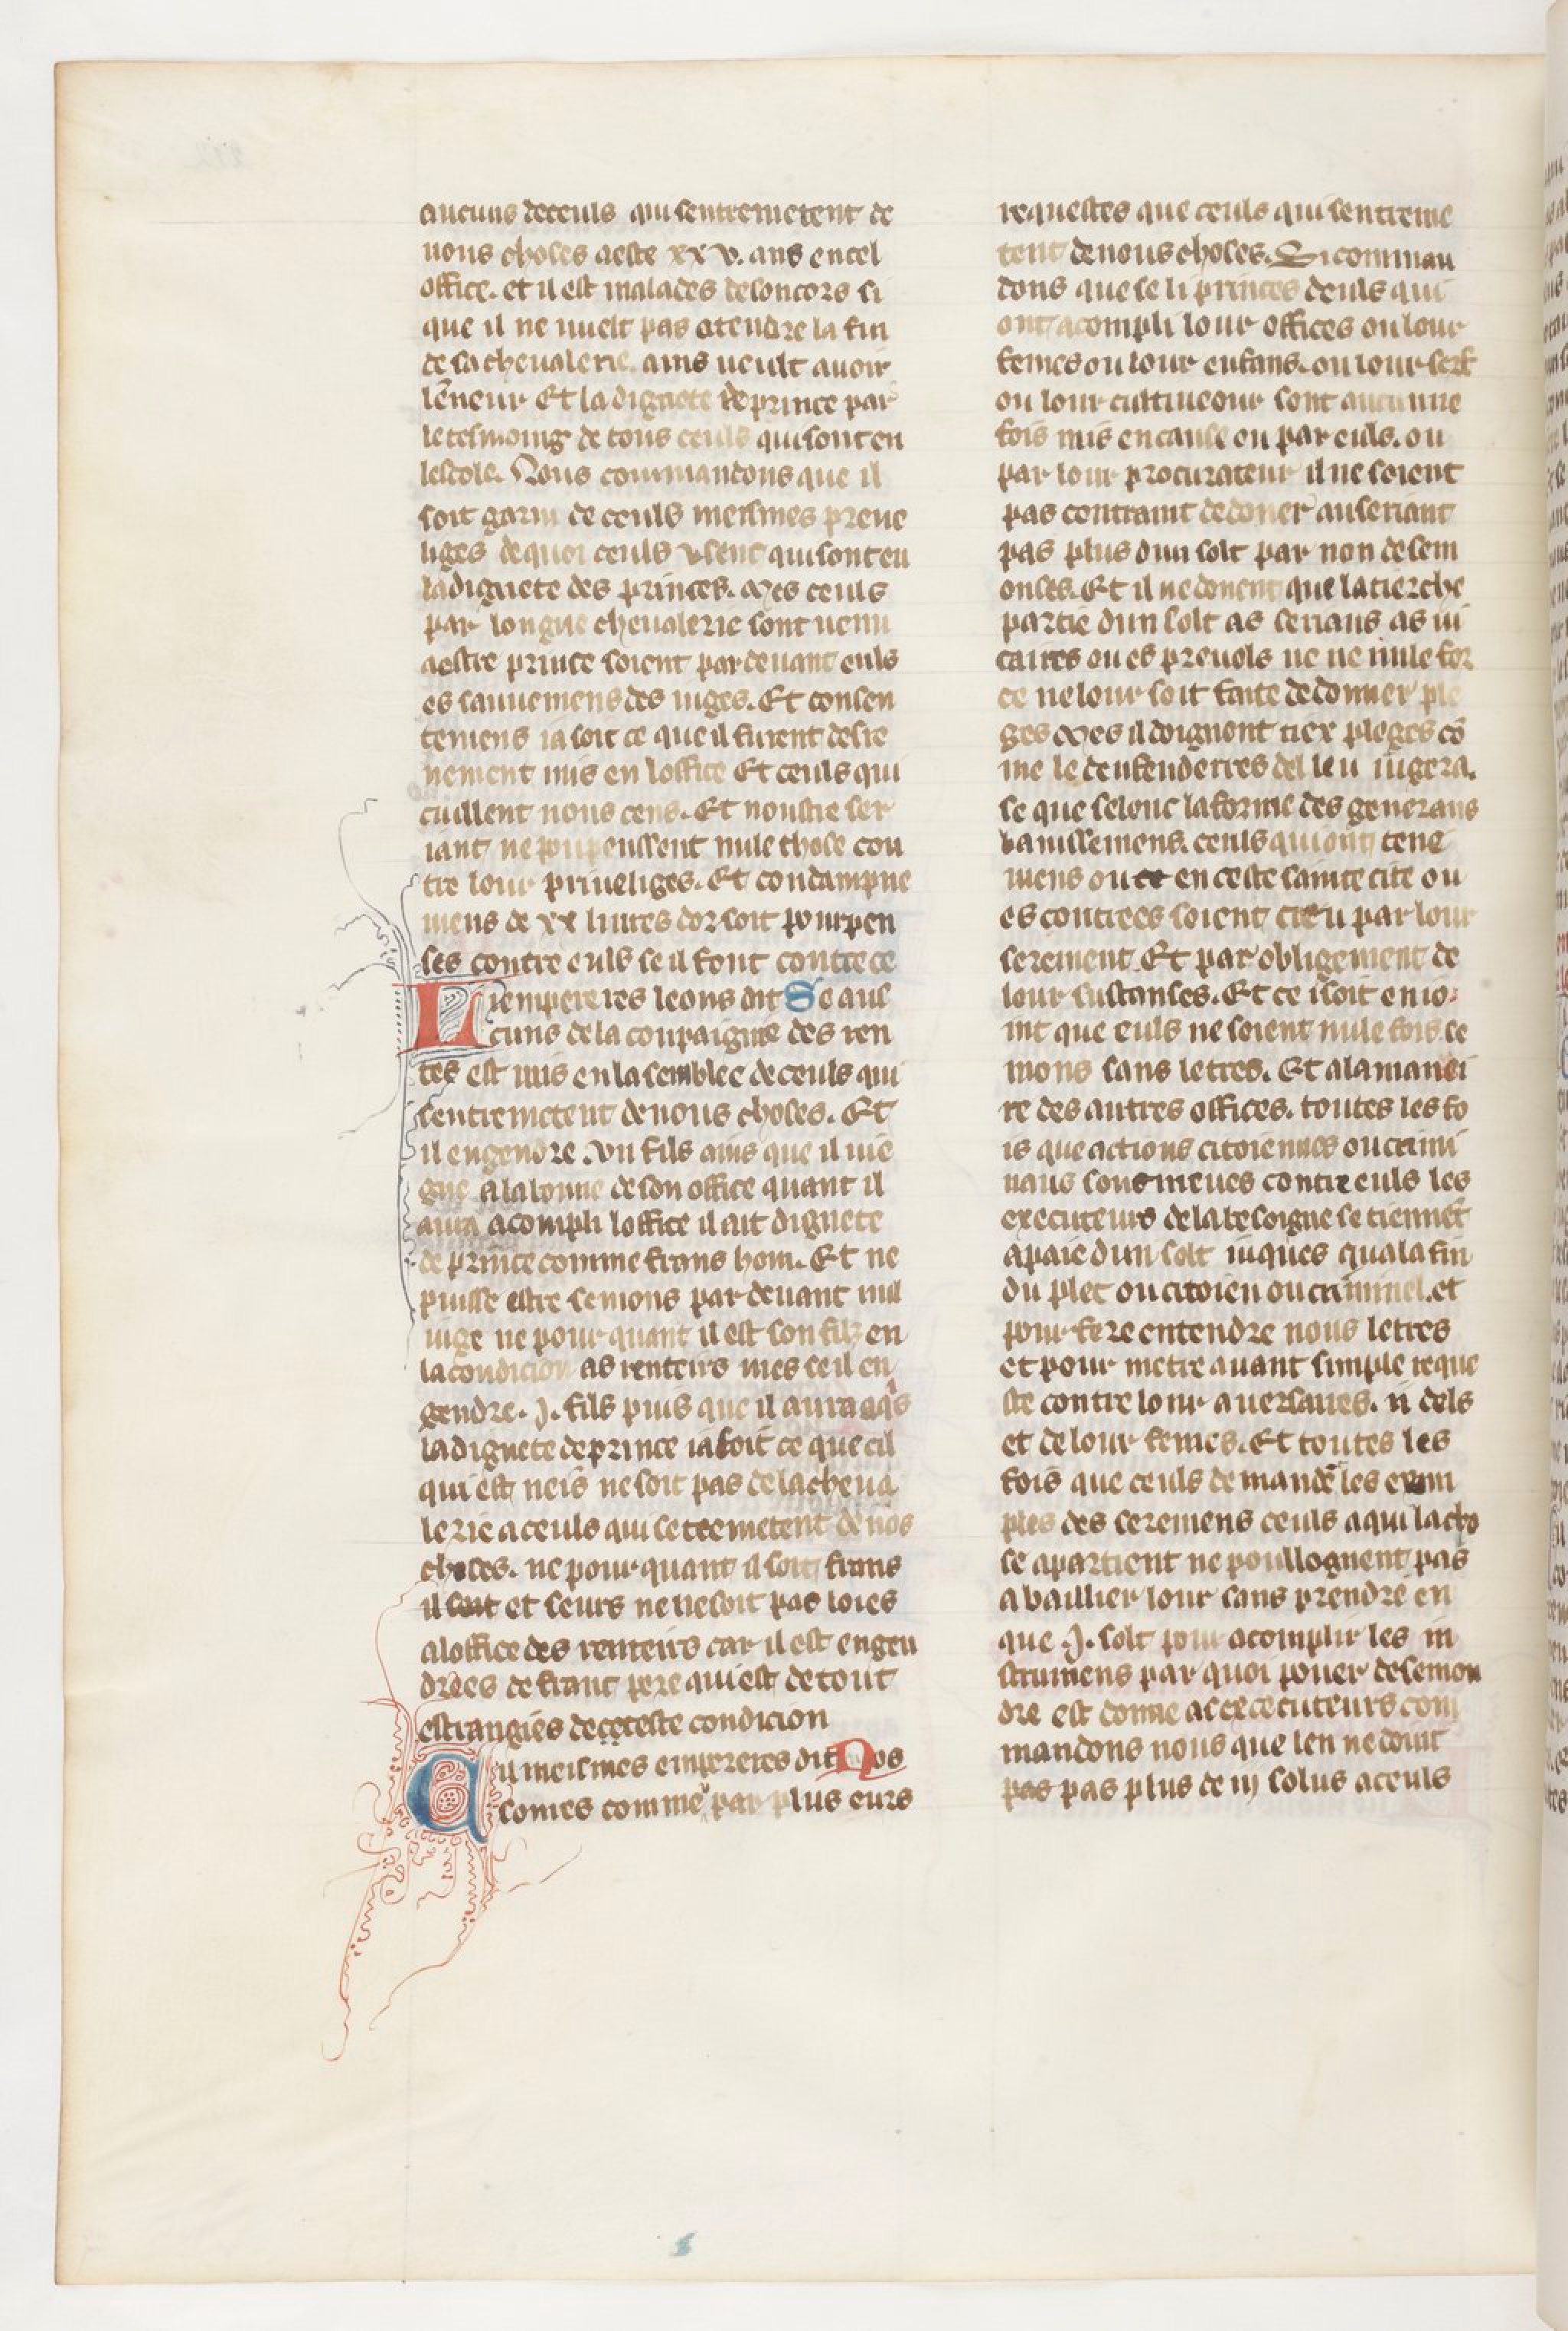 aucuns deceuls qui sentremetent de
nous choses aeste xxv. ans encel
office. et il est malades desoncors si
que il ne uuelt pas atendre la fin
de sa cheualerie. ains ueult auoir
lēneur Et la dignete de prince par
le tesmoing de tous ceuls qui sont en
lescole. Nous commandons que il
soit garni de ceuls meismes preue
liges dequoi ceuls usent qui sont en
ladignete des princes. Mes ceuls
par longue cheualerie sont uenu
aestre prince soient pardeuant euls
es sauuemens des iuges. Et consen
temens ia soit ce que il furent desre
nement mis en loffice Et ceuls qui
cuillent nous cens. Et noustre ser
iant ne pourpenssent nule chose con
tre lour priueliges. Et condampne
mens de xx liures dor soit pourpen
ses contre euls se il font contre ce
Liempereres leons dit Se auc
cuns de la conpaignie des ren
tes est mis en la semblee de ceuls qui
sentremetent de nous choses. Et
il engendre .vn fils ains que il uie
gne alabonne de son office quant il
aura acompli loffice il ait dignete
de prince comme frans hom. Et ne
puisse estre semons par deuant nul
iuge ne pour quant il est son filz en
la condicion as renteirs mes se il en
gendre .J. fils puis que il aura aqis
ladignete de prince ia soit ce que cil
qui est neis ne soit pas de la cheua
lerie a ceuls qui setremetent de nos
choses. ne pour quant il soit frans
il soit et seurs ne ne soit pas loies
aloffice des renteirs car il est engen
drees de franc pere qui est de tout
estrangies de ceteste condicion
Cil meismes empereres dit Nos
somes comme par plus eurs
requestes que ceuls qui sentreme
tent de nous choses. Si comman
dons que se li princes deuls qui
ont acompli lour offices ou lour
femes ou lour enfans. ou lour serf
ou lour cultiueour sont aucunne
fois mis en cause ou par euls. ou
par lour procurateur il ne soient
pas contraint de doner au seriant
pas plus dun solt par non de sem
onses. Et il ne donent que la tierche
partie dun solt as serians as ui
caires ou es preuols ne ne nule for
ce ne lour soit faite de donner ple
ges Mes il doignent tiex pleges cō
me le deufenderres del leu iugera.
se que selonc la forme des generaus
banissemens. ceuls qui ont tene
mens ou ce en ceste sainte cite ou
es contrees soient creu par lour
serement. Et par obligement de
lour sustanses. Et ce isoit enio
int que euls ne soient nule fois se
mons sans lettres. Et alamanei
re des autres offices. toutes les fo
is que actions citoiennes ou crimi
naus sont meues contre euls les
executeurs de la besoigne se tiennēt
apaie dun solt iuques qua la fin
du plet ou citoien ou criminel. et
pour fere entendre nous lettres
et pour metre auant simple reque
ste contre lour auersaires. ii dels
et de lour femes. Et toutes les
fois que ceuls demandē les exem
ples des seremens ceuls a qui la cho
se apartient ne poullognent pas
a baillier lour sans prendre en
que .J. solt pour acomplir les in
strumens par quoi pouer de semon
dre est donne as execcuteurs com
mandons nous que len ne doint
pas pas plus de iij solus a ceuls